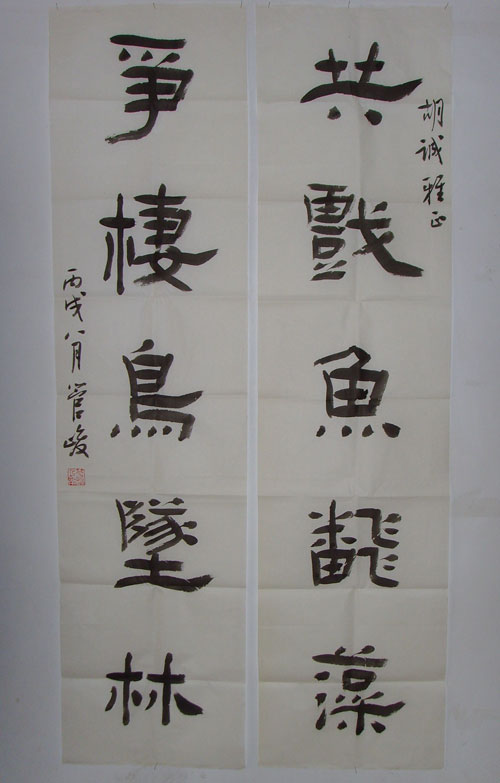 胡诚雅正
共戲魚飜藻
爭棲鳥墜林
丙戌八月管峻